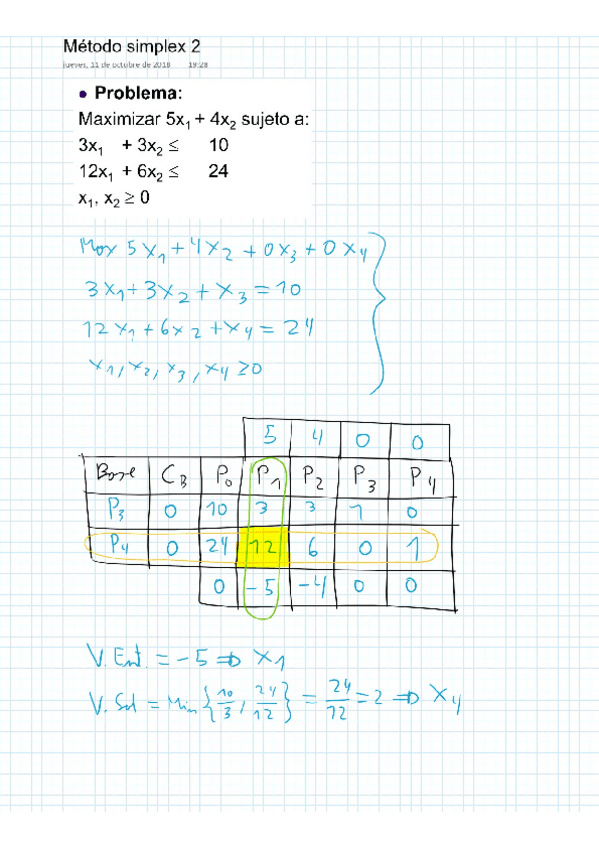 Método simplex 2
jueves, 11 de octubre de 2018 19:28
• Problema:
Maximizar 5x₁ + 4x₂ sujeto a:
3x₁ + 3x₂ ≤ 10
12x₁ + 6x₂ ≤ 24
x₁, x₂ ≥ 0
Max 5x₁ + 4x₂ + 0x₃ + 0x₄
3x₁ + 3x₂ + x₃ = 10
12x₁ + 6x₂ + x₄ = 24
x₁, x₂, x₃, x₄ ≥ 0
5 4 0 0
Base C_B P₀ P₁ P₂ P₃ P₄
P₃ 0 10 3 3 1 0
P₄ 0 24 12 6 0 1
0 -5 -4 0 0
V. Ent. = -5 ⇒ x₁
V. Sal = Min {10/3, 24/12} = 24/12 = 2 ⇒ x₄